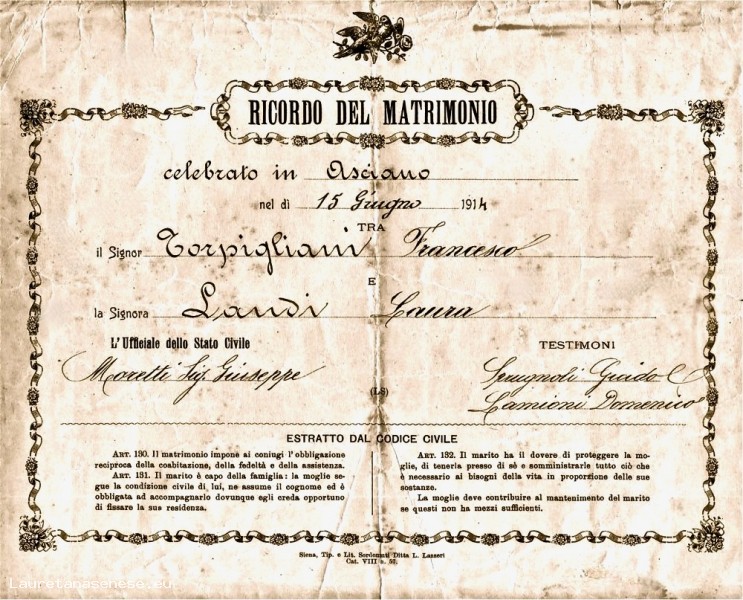 RICORDO DEL MATRIMONIO
celebrato in Asciano
nel dì 15 Giugno 1914
TRA
il Signor Torpigliani Francesco
E
la Signora Landi Laura
L'Ufficiale dello Stato Civile
Moretti Sig. Giuseppe
TESTIMONI
Spugnoli Guido
Lamioni Domenico
(LS)
ESTRATTO DAL CODICE CIVILE
ART. 130. Il matrimonio impone ai coniugi l'obbligazione
reciproca della coabitazione, della fedeltà e della assistenza.
ART. 131. Il marito è capo della famiglia: la moglie se-
gue la condizione civile di lui, ne assume il cognome ed è
obbligata ad accompagnarlo dovunque egli creda opportuno
di fissare la sua residenza.
ART. 132. Il marito ha il dovere di proteggere la mo-
glie, di tenerla presso di sè e somministrarle tutto ciò che
è necessario ai bisogni della vita in proporzione delle sue
sostanze.
La moglie deve contribuire al mantenimento del marito
se questi non ha mezzi sufficienti.
Siena, Tip. e Lit. Sordomuti Ditta L. Lazzeri
Cat. VIII n. 52.
Lauretanasenese.eu